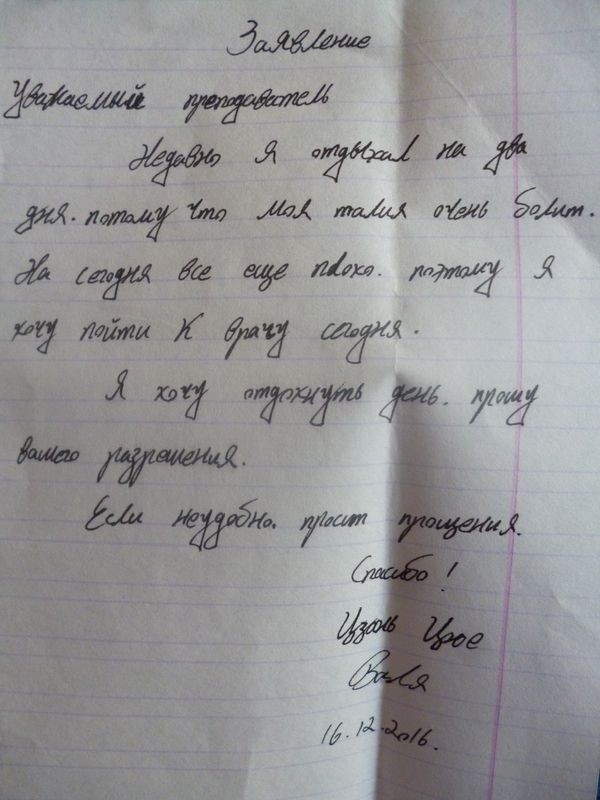 Заявление
Уважаемый преподаватель
Недавно я отдыхал на два
дня. потому что моя талия очень болит.
На сегодня все еще плохо. поэтому я
хочу пойти к врачу сегодня.
Я хочу отдохнуть день. прошу
вашего разрешения.
Если неудобно. просит прощения.
Спасибо!
Цзянь Цюе
Валя
16.12.2016.